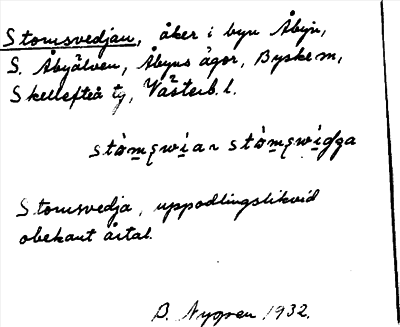 Stomsvedjan, åker i byn Åbyn,
S. Åbyälven, Åbyns ägor, Byske sn,
Skellefteå tg, Västerb. l.
Stomsvedja, uppodlingslikvid
obekant årtal.
B. Nygren 1932.